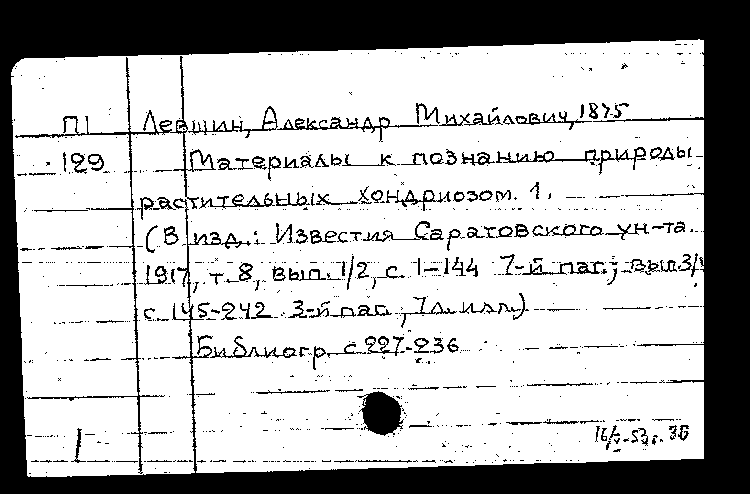 П1 Левшин, Александр Михайлович, 1875
129 Материалы к познанию природы
растительных хондриозом. 1.
(В изд.: Известия Саратовского ун-та.
1917, т. 8, вып. 1/2, с. 1-144 7-й паг.; вып 3/4
с 145-242 3-й паг., 7 л. илл.)
Библиогр. с 227-236